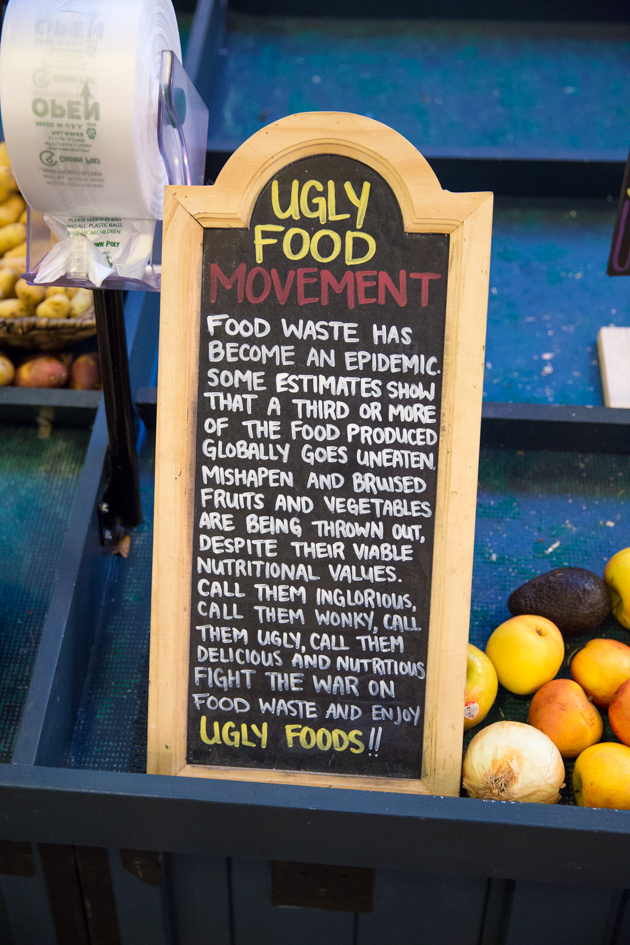 OPEN
MADE IN U.S.A.
CROWN POLY
AND ALL PLASTIC BAGS
AWAY FROM CHILDREN
OWN POLY
UGLY
FOOD
MOVEMENT
FOOD WASTE HAS
BECOME AN EPIDEMIC.
SOME ESTIMATES SHOW
THAT A THIRD OR MORE
OF THE FOOD PRODUCED
GLOBALLY GOES UNEATEN.
MISHAPEN AND BRUISED
FRUITS AND VEGETABLES
ARE BEING THROWN OUT,
DESPITE THEIR VIABLE
NUTRITIONAL VALUES.
CALL THEM INGLORIOUS,
CALL THEM WONKY, CALL
THEM UGLY, CALL THEM
DELICIOUS AND NUTRITIOUS
FIGHT THE WAR ON
FOOD WASTE AND ENJOY
UGLY FOODS!!